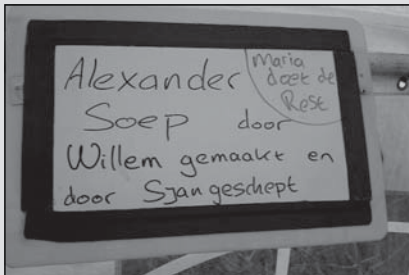 Alexander
Soep door
Willem gemaakt en
door Sjan geschept
Maria
doet de
Rest